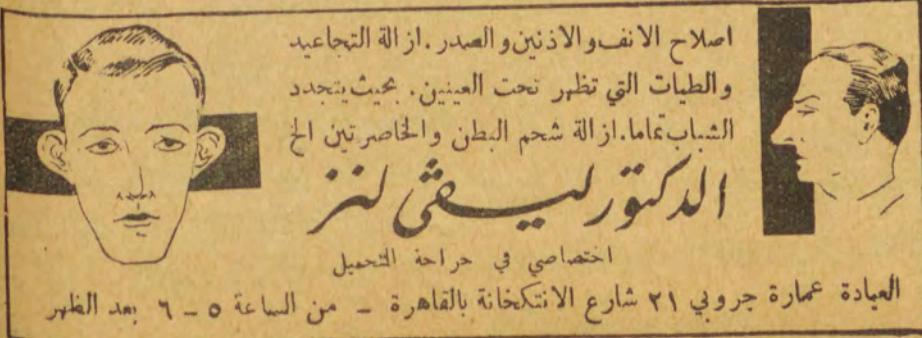 اصلاح الانف والاذنين والصدر. ازالة التجاعيد
والطيات التي تظهر تحت العينين. بحيث يتجدد
الشباب تماما. ازالة شحم البطن والخاصرتين الخ
الدكتور ليڤي لنز
اختصاصي في جراحة التجميل
العيادة عمارة جروبي ٢١ شارع الانتكخانة بالقاهرة – من الساعة ٥ – ٦ بعد الظهر